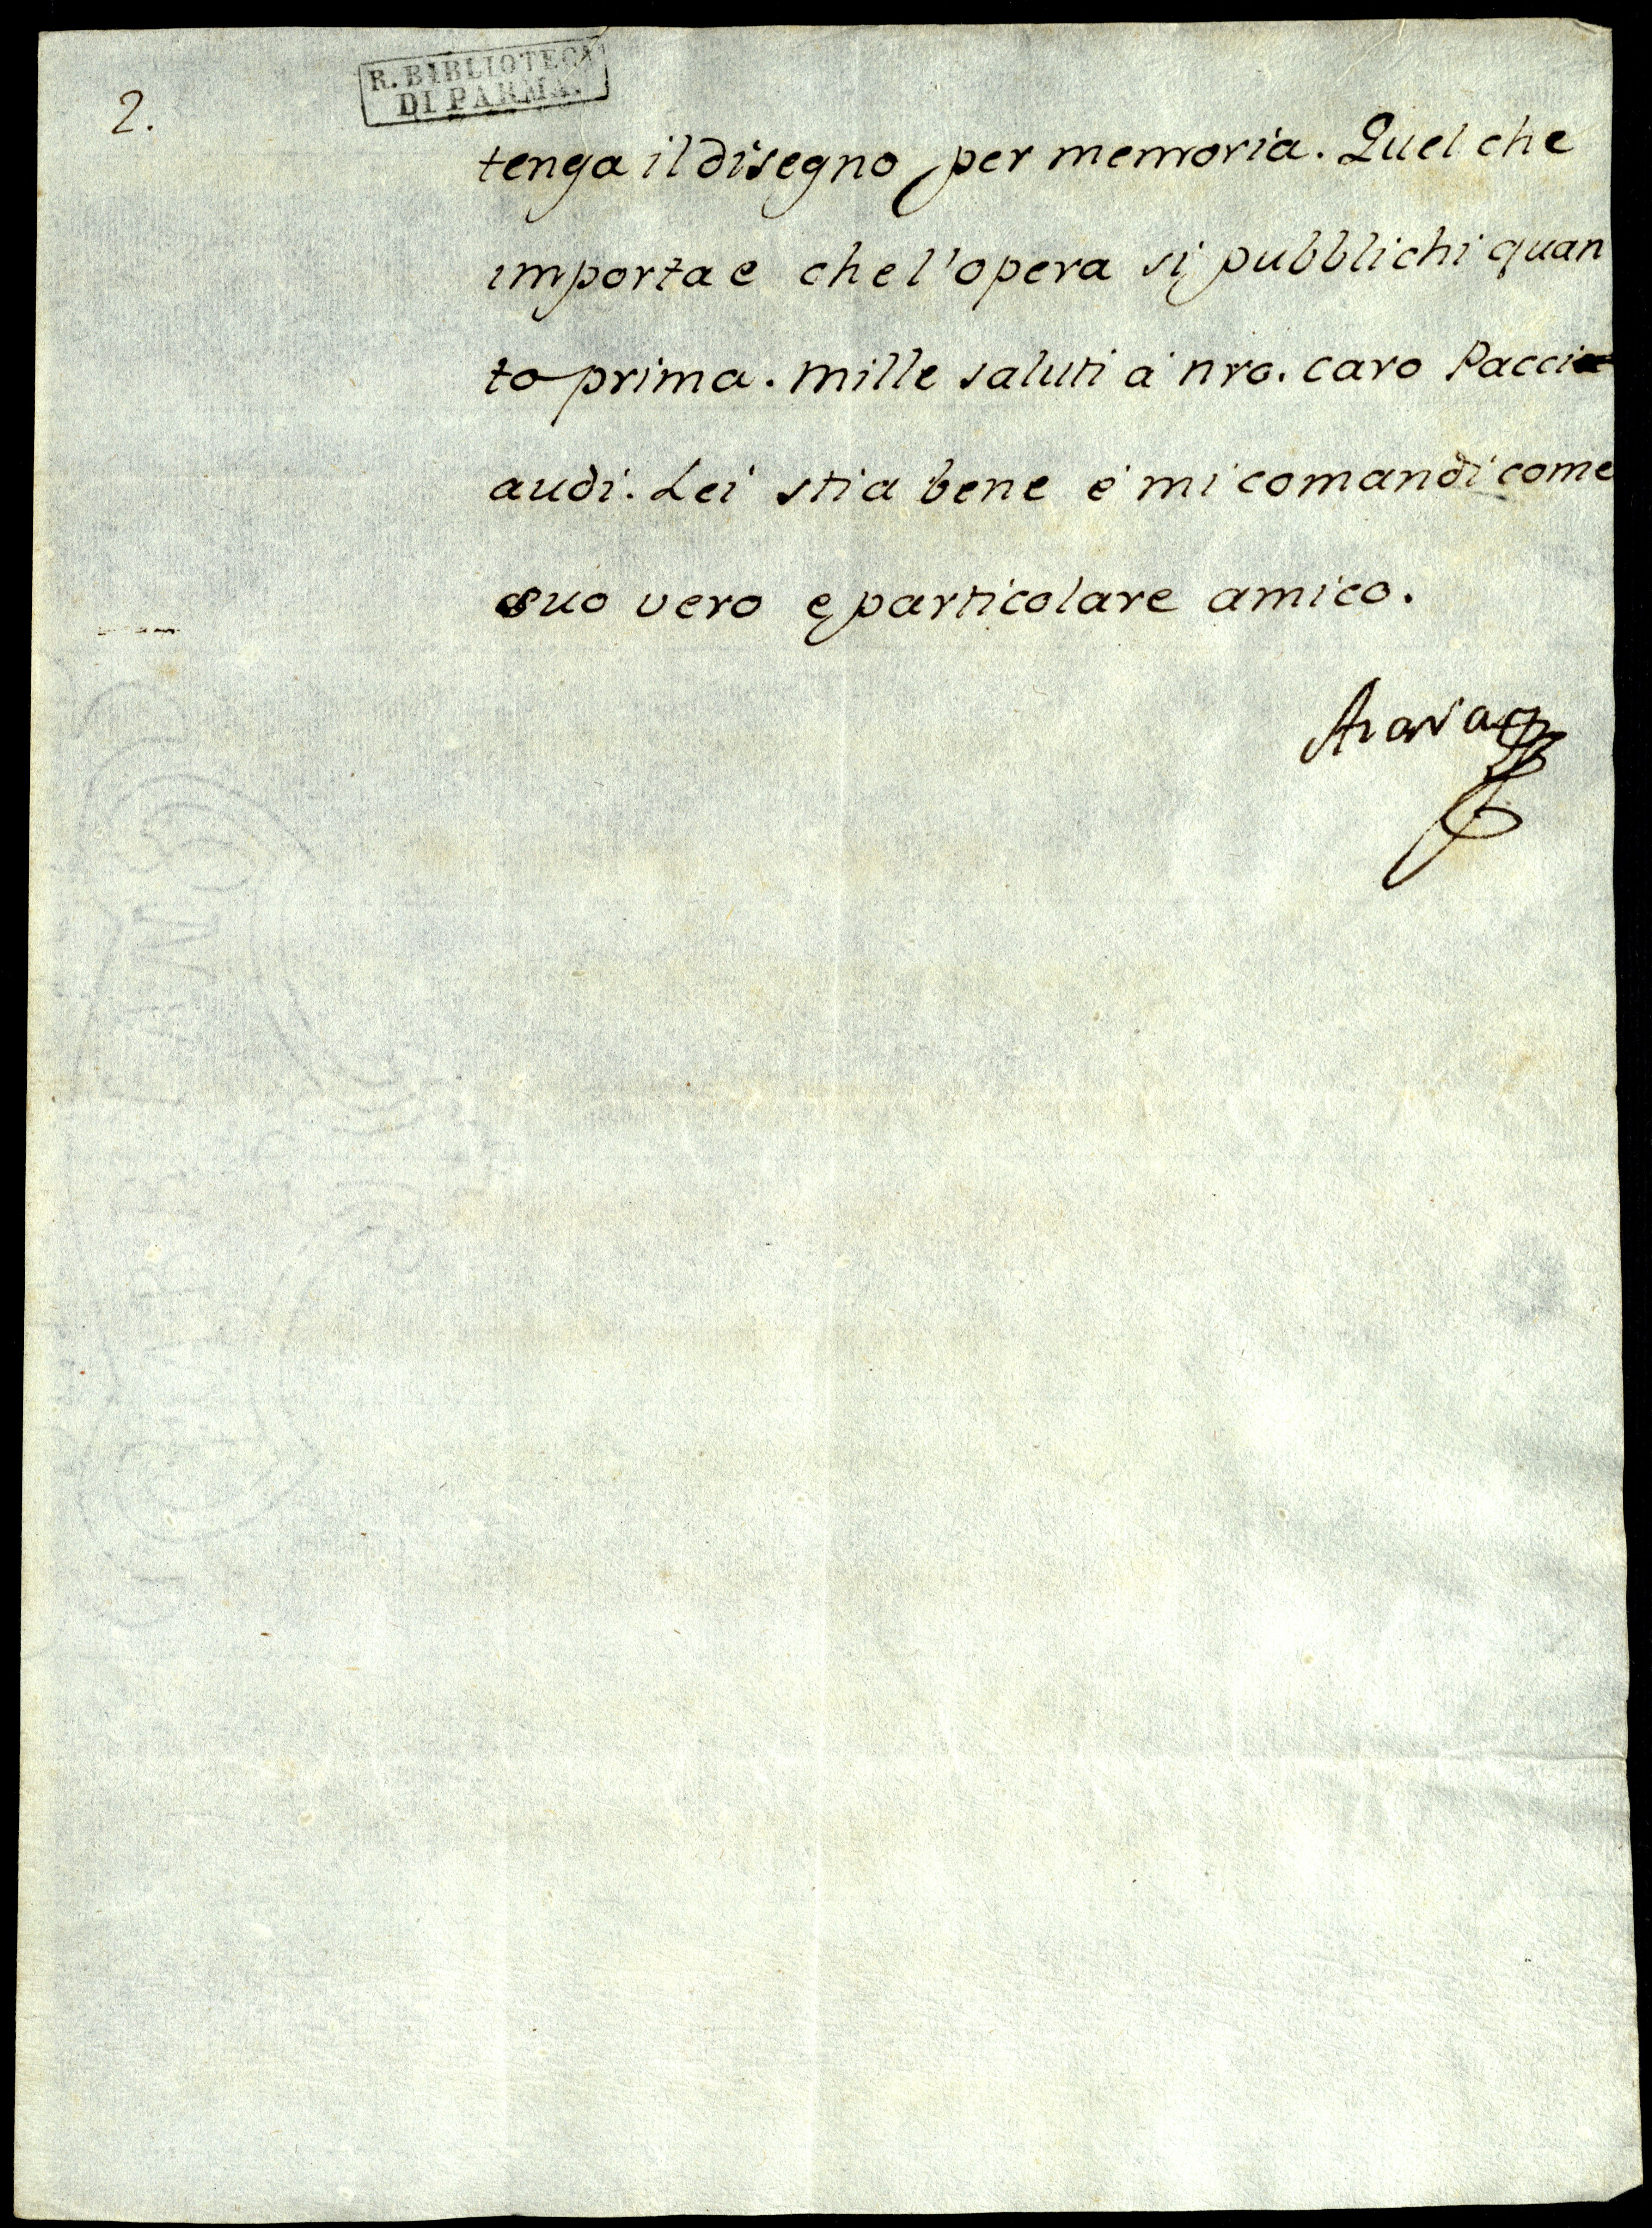 2.
R. BIBLIOTECA
DI PARMA.
tenga il disegno per memoria. Quel che
importa e che l'opera si pubblichi quan
to prima. mille saluti a nro. caro Pacci
audi. Lei stia bene e mi comandi come
suo vero e particolare amico.